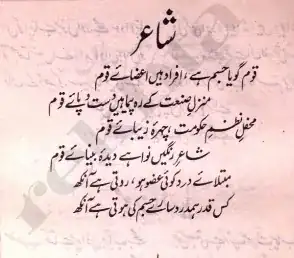 شاعر
قوم گویا جسم ہے، افراد ہیں اعضائے قوم
منزلِ صنعت کے رہ پیما ہیں دست و پائے قوم
محفلِ نظمِ حکومت، چہرۂ زیبائے قوم
شاعرِ رنگیں نوا ہے دیدۂ بینائے قوم
مبتلائے درد کوئی عضو ہو، روتی ہے آنکھ
کس قدر ہمدرد سارے جسم کی ہوتی ہے آنکھ